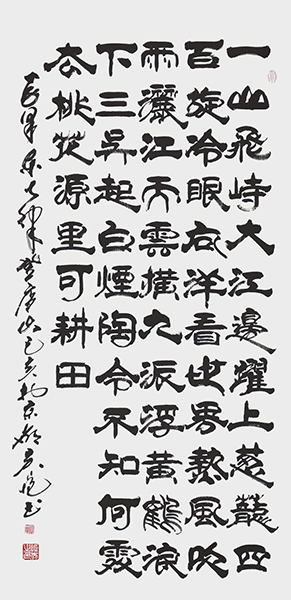 一山飛峙大江邊躍上葱蘢四
百旋冷眼向洋看世界熱風吹
雨灑江天雲橫九派浮黃鶴浪
下三吳起白煙陶令不知何處
去桃花源里可耕田
毛澤東七律登廬山己亥於京